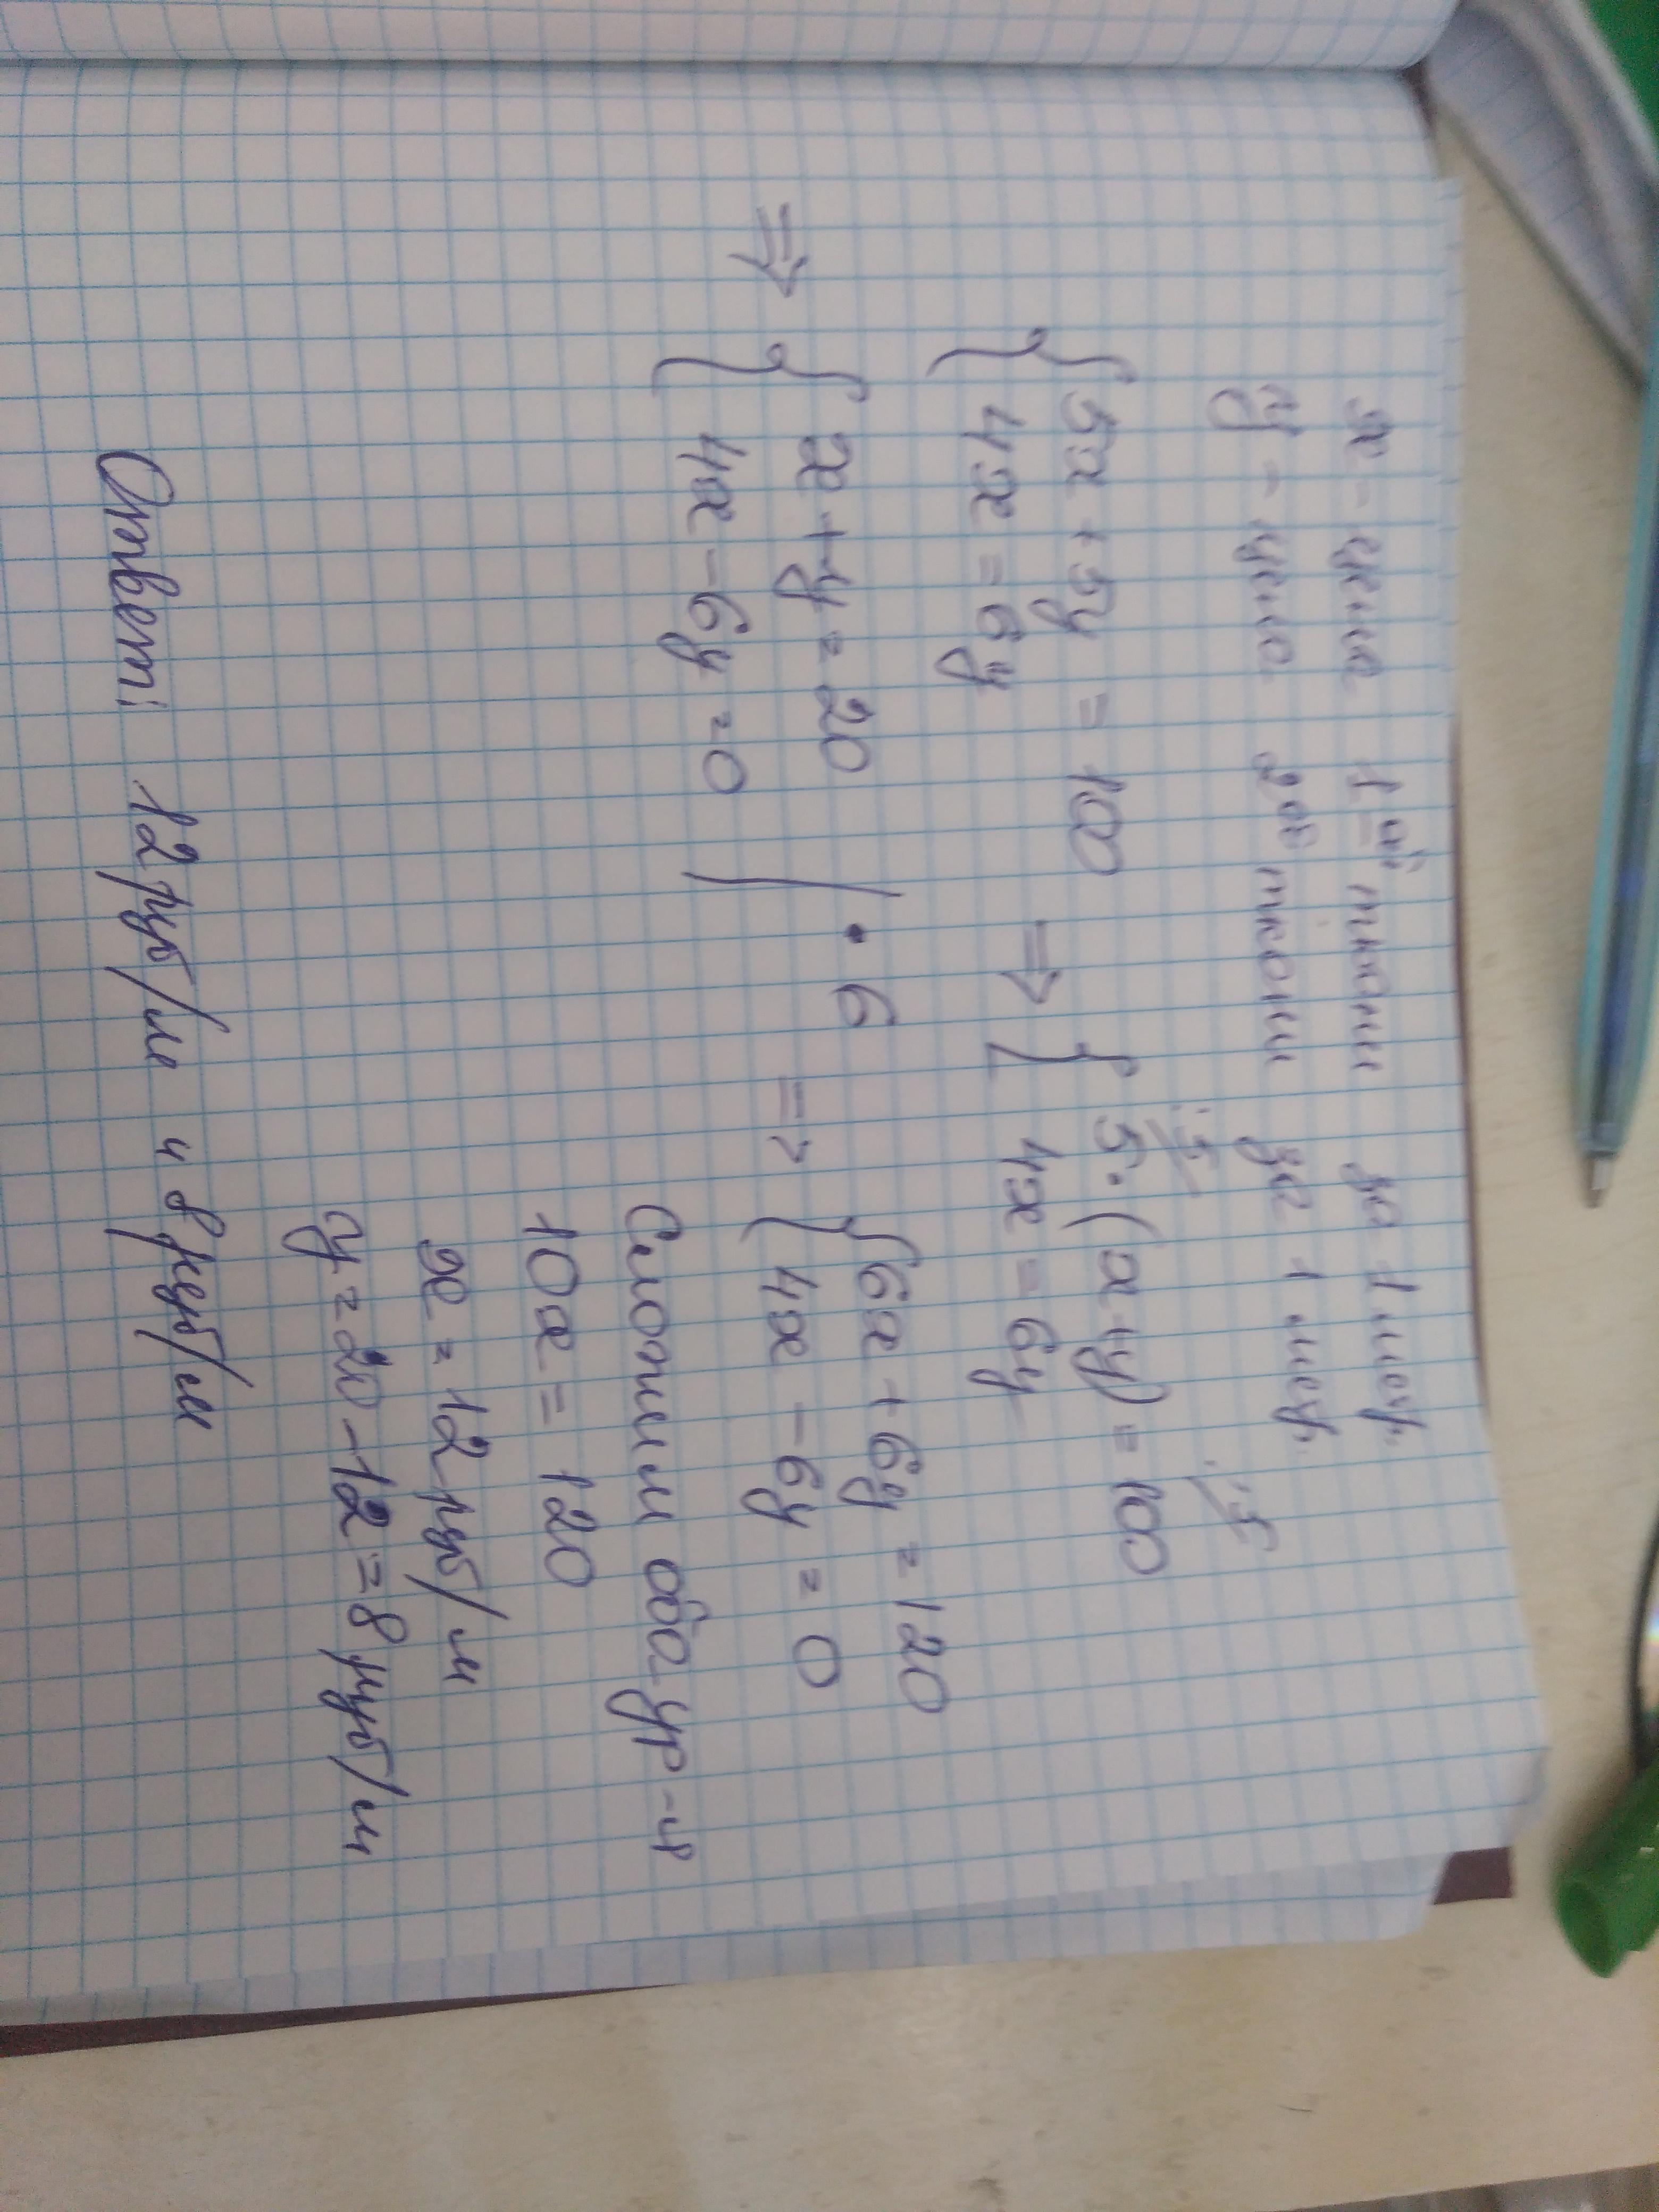 x - цена 1ой ткани за 1 метр.
y - цена 2ой ткани за 1 метр.
:5 :5
{ 5x + 5y = 100 => { 5·(x+y) = 100
4x = 6y 4x = 6y
=> { x + y = 20 | · 6 => { 6x + 6y = 120
4x - 6y = 0 4x - 6y = 0
Сложим оба ур-я
10x = 120
x = 12 руб/м
y = 20 - 12 = 8 руб/м
Ответ: 12 руб/м и 8 руб/м